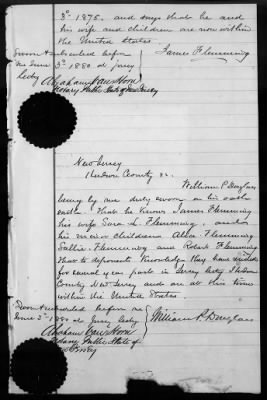 3d 1875. and says that he and
his wife and children are now within
the United States.
Sworn & subscribed before
me June 3d 1880 at Jersey
City
James Flemming
Abraham Van Horn
Notary Public State of New Jersey
New Jersey
Hudson County ss.
William P. Douglass
being by me duly sworn on his oath
saith. that he knows James Flemming
his wife Sara L. Flemming. and
his minor children Allen Flemming
Sallie Flemming and Robert Flemming
that to deponents Knowledge they have resided
for several years past in Jersey City Hudson
County New Jersey and are at this time
within the United States
Sworn & subscribed before me
June 3d 1880 at Jersey City
William P. Douglass
Abraham Van Horn
Notary Public State of
New Jersey